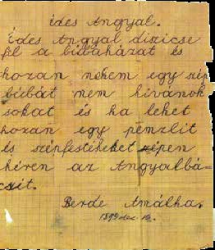 édes Angyal.
Édes Angyal diszicse
fel a bábaházat és
hozan nekem egy szép
bábát nem kivánok
sokat és ha lehet
hozan egy pénzlit
és szinfestéket szépen
kérem az Angyalbá-
csit.
Berde Amálka.